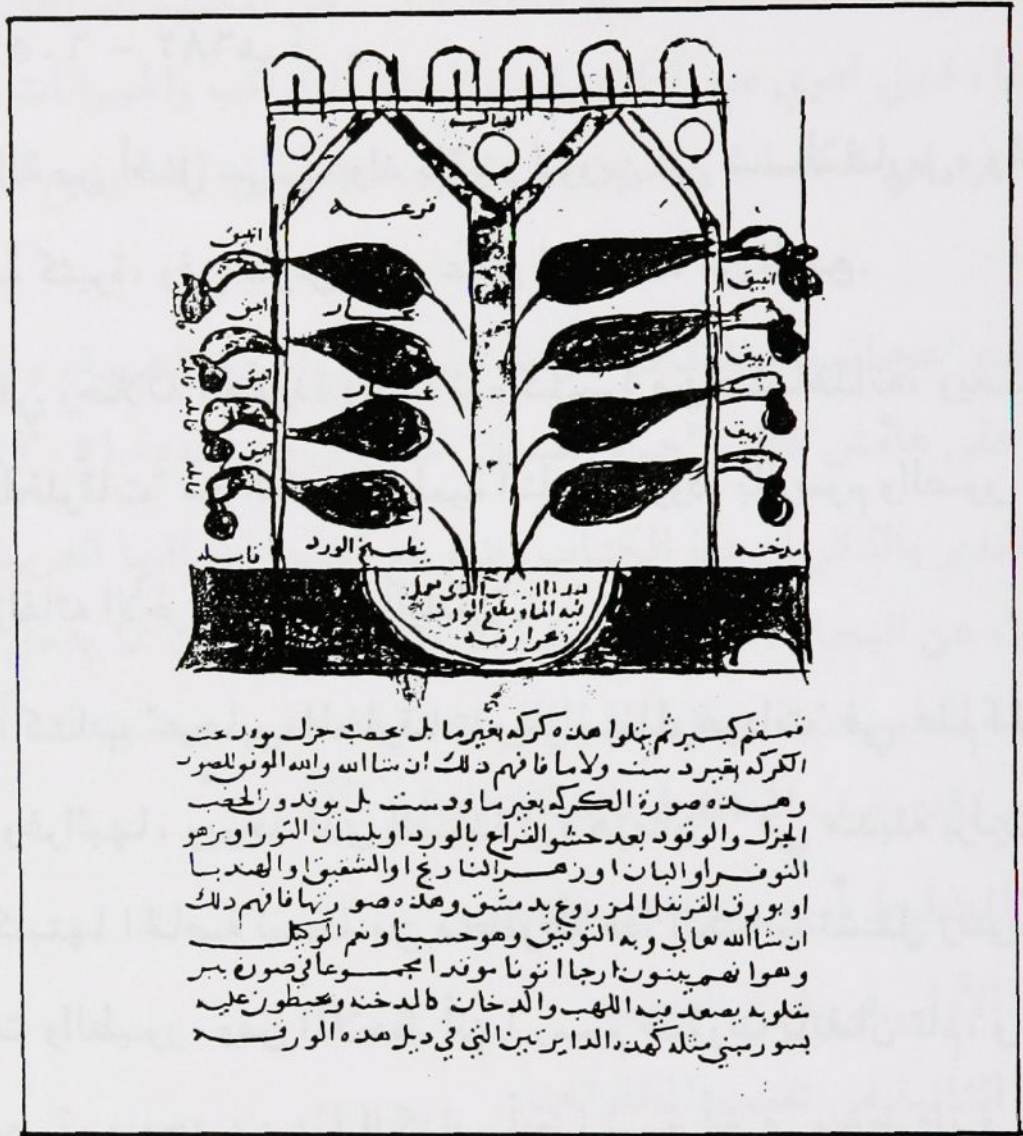 قرعـــة
انبيق
انبيق
انبيق
انبيق
انبيق
انبيق
قابله
قابله
قابله
قابلــه
يطبخ الورد
مدخنه
الذي يعمل
فيه الماء يطبخ الورد
بحرارته
قمقم كبير ثم يتلوا هذه كركه بغير ما بل بحطب جزل موقد تحت
الكركه بغير دست ولا ما فافهم ذلك ان شا الله والله الموفق للصواب
وهـــذه صورة الكركه بغير ما ودست بل يوقدون الحطب
الجزل والوقود بعد حشو القراع بالورد او بلسان الثور او بزهر
النوفر او البان او زهـــر النارنج او الشقيق او الهندبـــا
او بورق القرنفل المزروع بدمشق وهذه صورتها فافهم ذلك
ان شا الله تعالي وبه التوفيق وهو حسبنا ونعم الوكيل
وهو انهم يبنون ارجا اتونا موقدا مجمــوعا في صورة بير
مقلوبه يصعد فيه اللهب والدخان كالمدخنه ويحيطون عليه
بسور مبني مثله كهذه الدايرتين التي في ذيل هذه الورقـــه